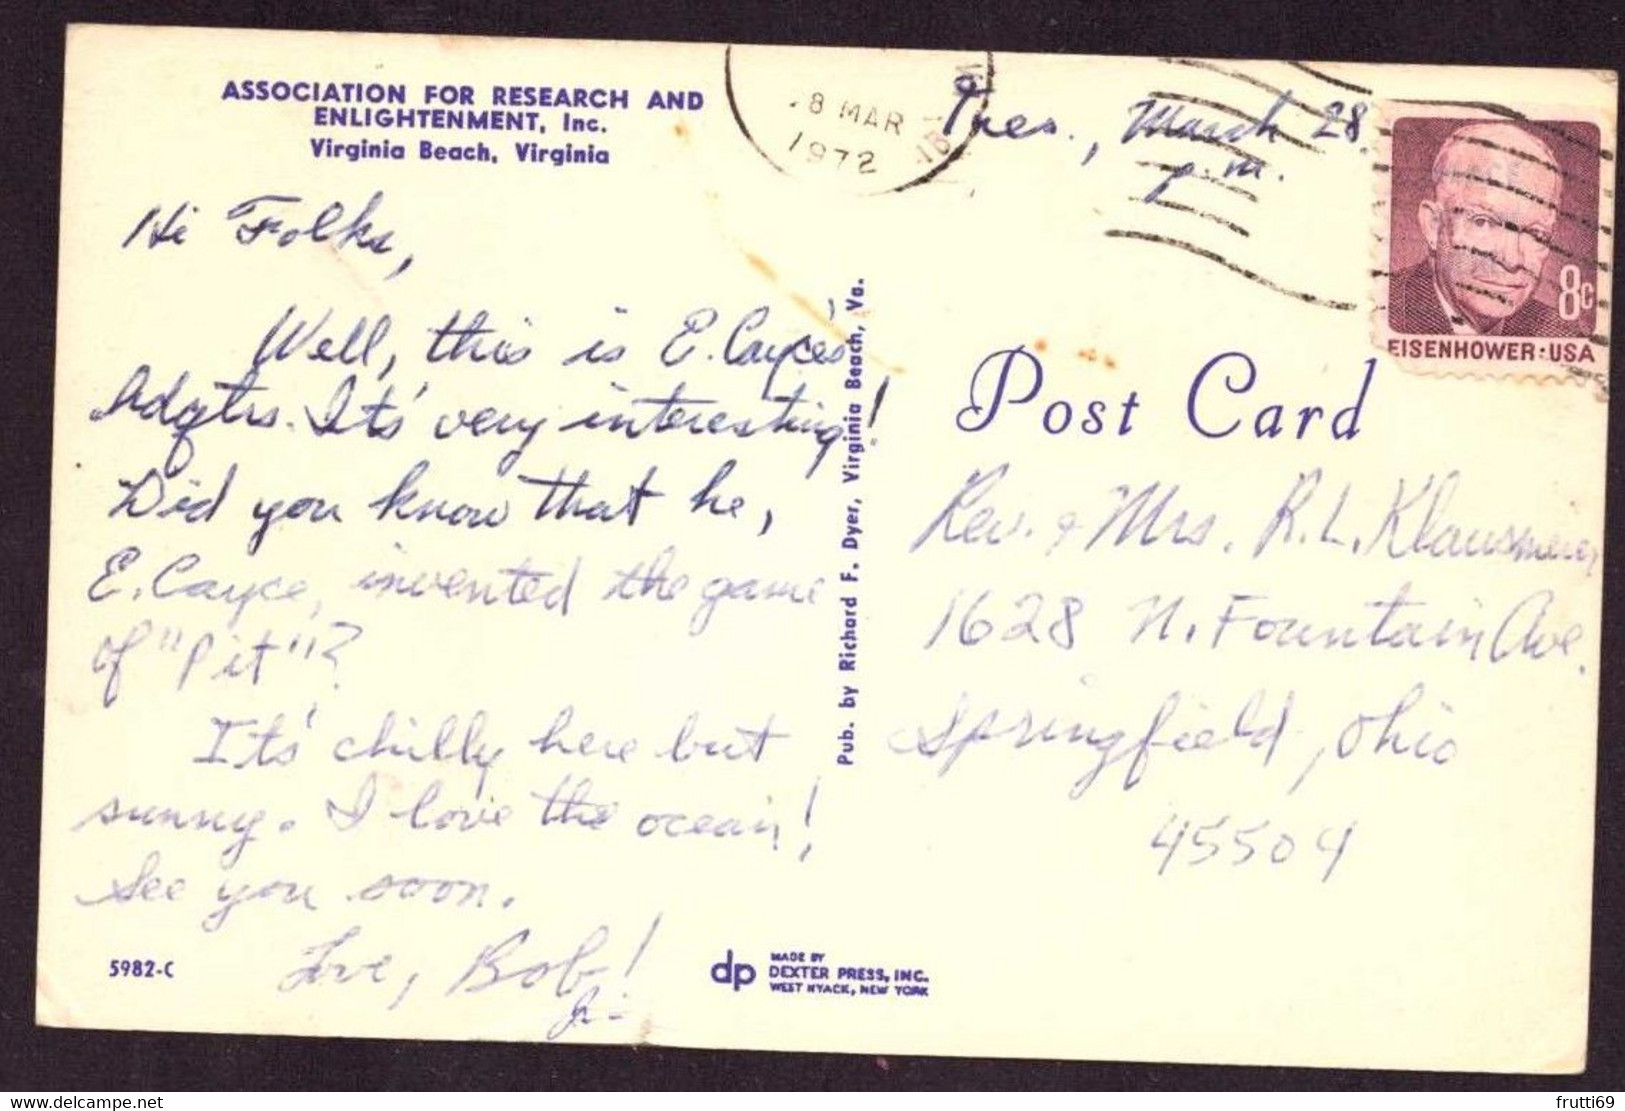 ASSOCIATION FOR RESEARCH AND
ENLIGHTENMENT, Inc.
Virginia Beach, Virginia
8 MAR
1972
Tues., March 28.
p.m.
EISENHOWER·USA
8c
Hi Folks,
Well, this is E. Cayce's
hdqtrs. It's very interesting!
Did you know that he,
E. Cayce, invented the game
of "Pit"?
It's chilly here but
sunny. I love the ocean!
See you soon.
Love, Bob!
Jr.
5982-C
Pub. by Richard F. Dyer, Virginia Beach, Va.
Post Card
Rev. & Mrs. R. L. Klausmeier
1628 N. Fountain Ave.
Springfield, Ohio
45504
dp
MADE BY
DEXTER PRESS, INC.
WEST NYACK, NEW YORK
delcampe.net
frutti69